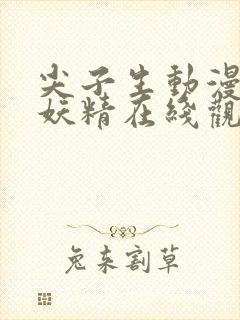 尖子生動漫
妖精在綫觀
兔來割草